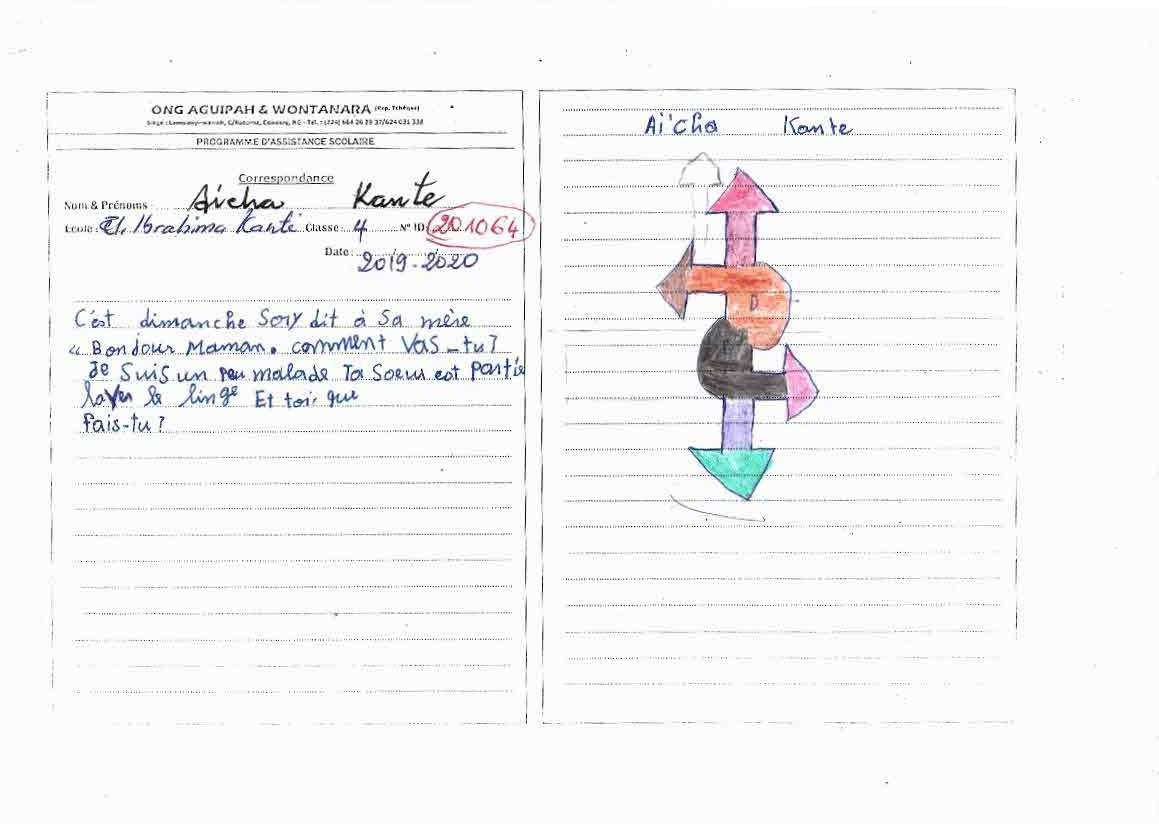 ONG AGUIPAH & WONTANARA (Rep. Tchèque)
PROGRAMME D'ASSISTANCE SCOLAIRE
Correspondance
Nom & Prénoms Aicha Kante
Ecole : El. Ibrahima Kanté Classe : 4 N° ID: 201064
Date : 2019-2020
C'est dimanche Sory dit à Sa mère
« Bondour Maman. comment Vas-tu?
Je Suis un peu malade Ta Soeur est Partie
laver le linge Et toi, que
fais-tu?
Ai'cha Kante
D